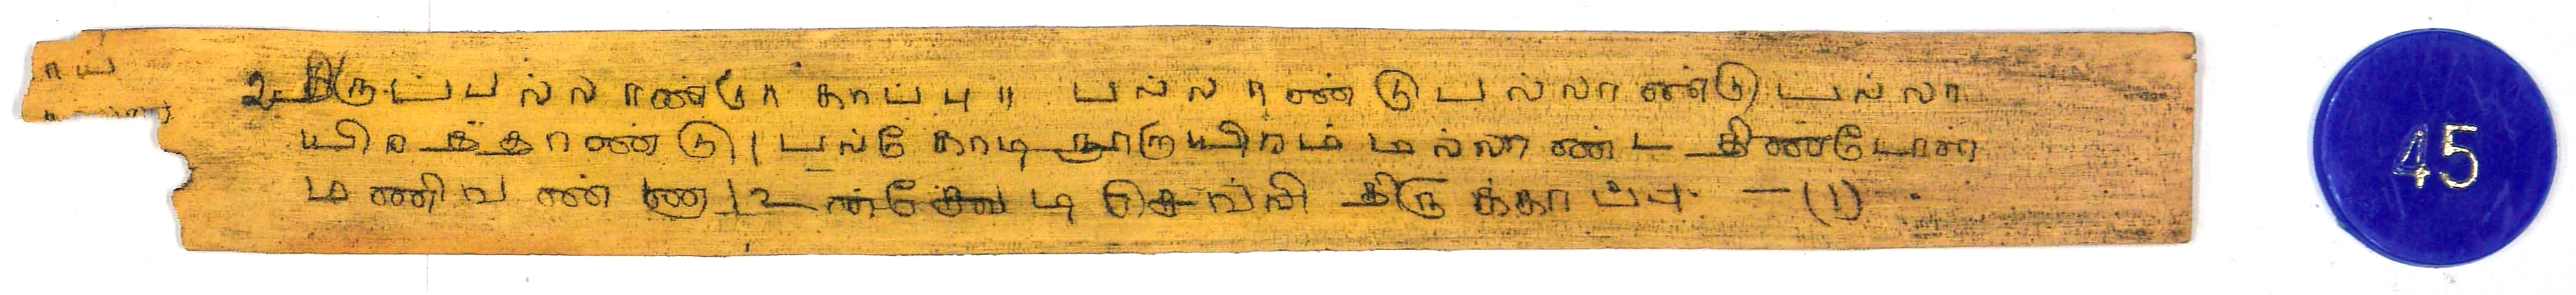 உ திருப்பல்லாண்டு காப்பு॥ பல்லாண்டு பல்லாண்டு பல்லா
யிரத்தாண்டு। பல்கோடி நூறுயிரம் மல்லாண்ட திண்டோள்
மணிவண்ணா உன்சேவடி செவ்வி திருக்காப்பு — (1)
45